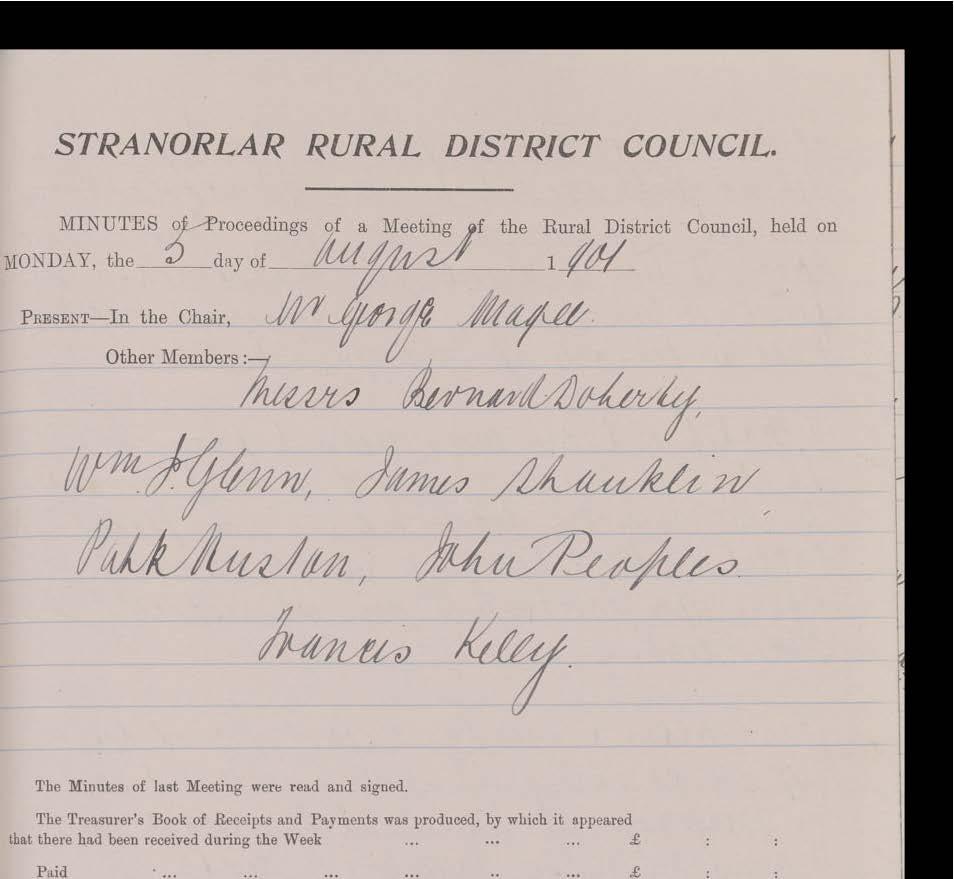 STRANORLAR RURAL DISTRICT COUNCIL.
MINUTES of Proceedings of a Meeting of the Rural District Council, held on
MONDAY, the 5 day of August 1901
PRESENT—In the Chair, Mr George Magee.
Other Members:—
Messrs Bernard Doherty,
Wm. J. Glenn, James Shanklin
Patk , John Peoples.
Francis Kelly.
The Minutes of last Meeting were read and signed.
The Treasurer's Book of Receipts and Payments was produced, by which it appeared
that there had been received during the Week ... ... ... £ : :
Paid ... ... ... ... .. ... £ : :